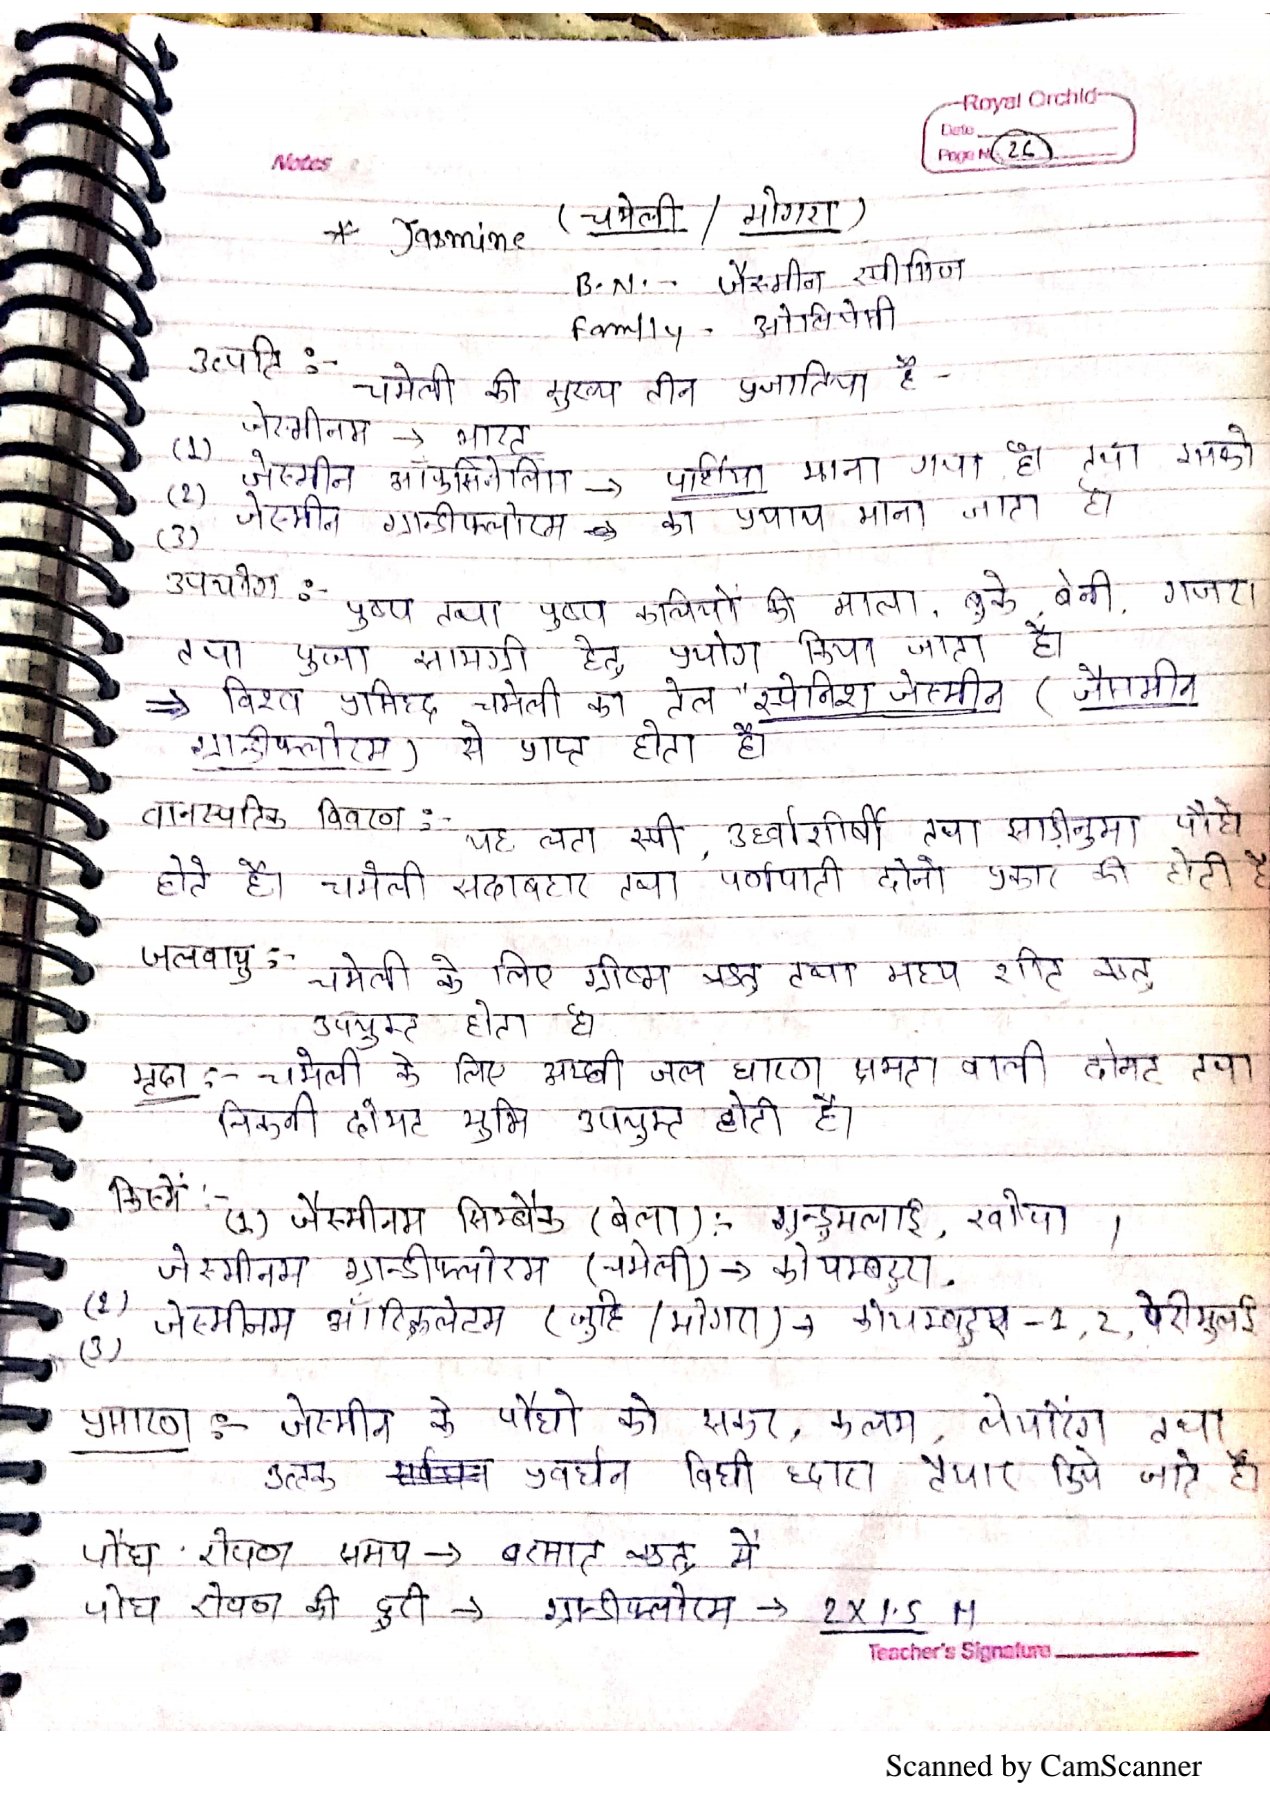 Royal Orchid
Date
Page No. 26
Notes
* Jasmine (चमेली / मोगरा)
B.N. :- जैस्मीन स्पीसिज
Family - ओलियेसी
उत्पति :-
चमेली की मुख्य तीन प्रजातिया है -
(1) जेस्मीनम → भारत
(2) जेस्मीन ऑफुसिनेलिा → पर्शिया माना गया है। तथा इसको
(3) जेस्मीन ग्रान्डीफ्लोरम → का प्रयाय माना जाता है।
उपयोग :- पुष्प तथा पुष्प कलियों की माला, बुके, बेनी, गजरा
तथा पुजा सामग्री हेतु प्रयोग किया जाता है।
⇒ विश्व प्रसिध्द चमेली का तेल "स्पेनिश जेस्मीन (जैसमीन
ग्रान्डीफ्लोरम) से प्राप्त होता है।
वानस्पतिक विवरण :- यह लता रूपी, उर्ध्वाशीर्षी तथा झाडीनुमा पौधे
होते है। चमेली सदाबहार तथा पर्णपाती दोनो प्रकार की होती है
जलवायु :- चमेली के लिए ग्रीष्म ऋतु तथा मध्य शीत ऋतु
उपयुक्त होता है।
मृदा :- चमेली के लिए अच्छी जल धारण क्षमता वाली दोमट तथा
चिकनी दोमट भुमि उपयुक्त होती है।
किस्में :- (1) जैस्मीनम सिम्बैक (बेला) :- गुन्डुमलाई, खोया,
(2) जेस्मीनम ग्रान्डीफ्लोरम (चमेली) → कोयम्बटुरा.
(3) जेस्मीनम ऑरिकुलेटम (जुहि / मोगरा) → कोयम्बटुर - 1, 2, पेरीमुलई
प्रसारण :- जेस्मीन के पौधो को सकर, कलम, लेयरिंग तथा
उत्तक प्रवर्धन विधी ध्दारा तैयार किये जाते है।
पौध रोपण समय → बरसात ऋतु में
पौध रोपण की दुरी → ग्रान्डीफ्लोरम → 2 X 1.5 M
Teacher's Signature
Scanned by CamScanner